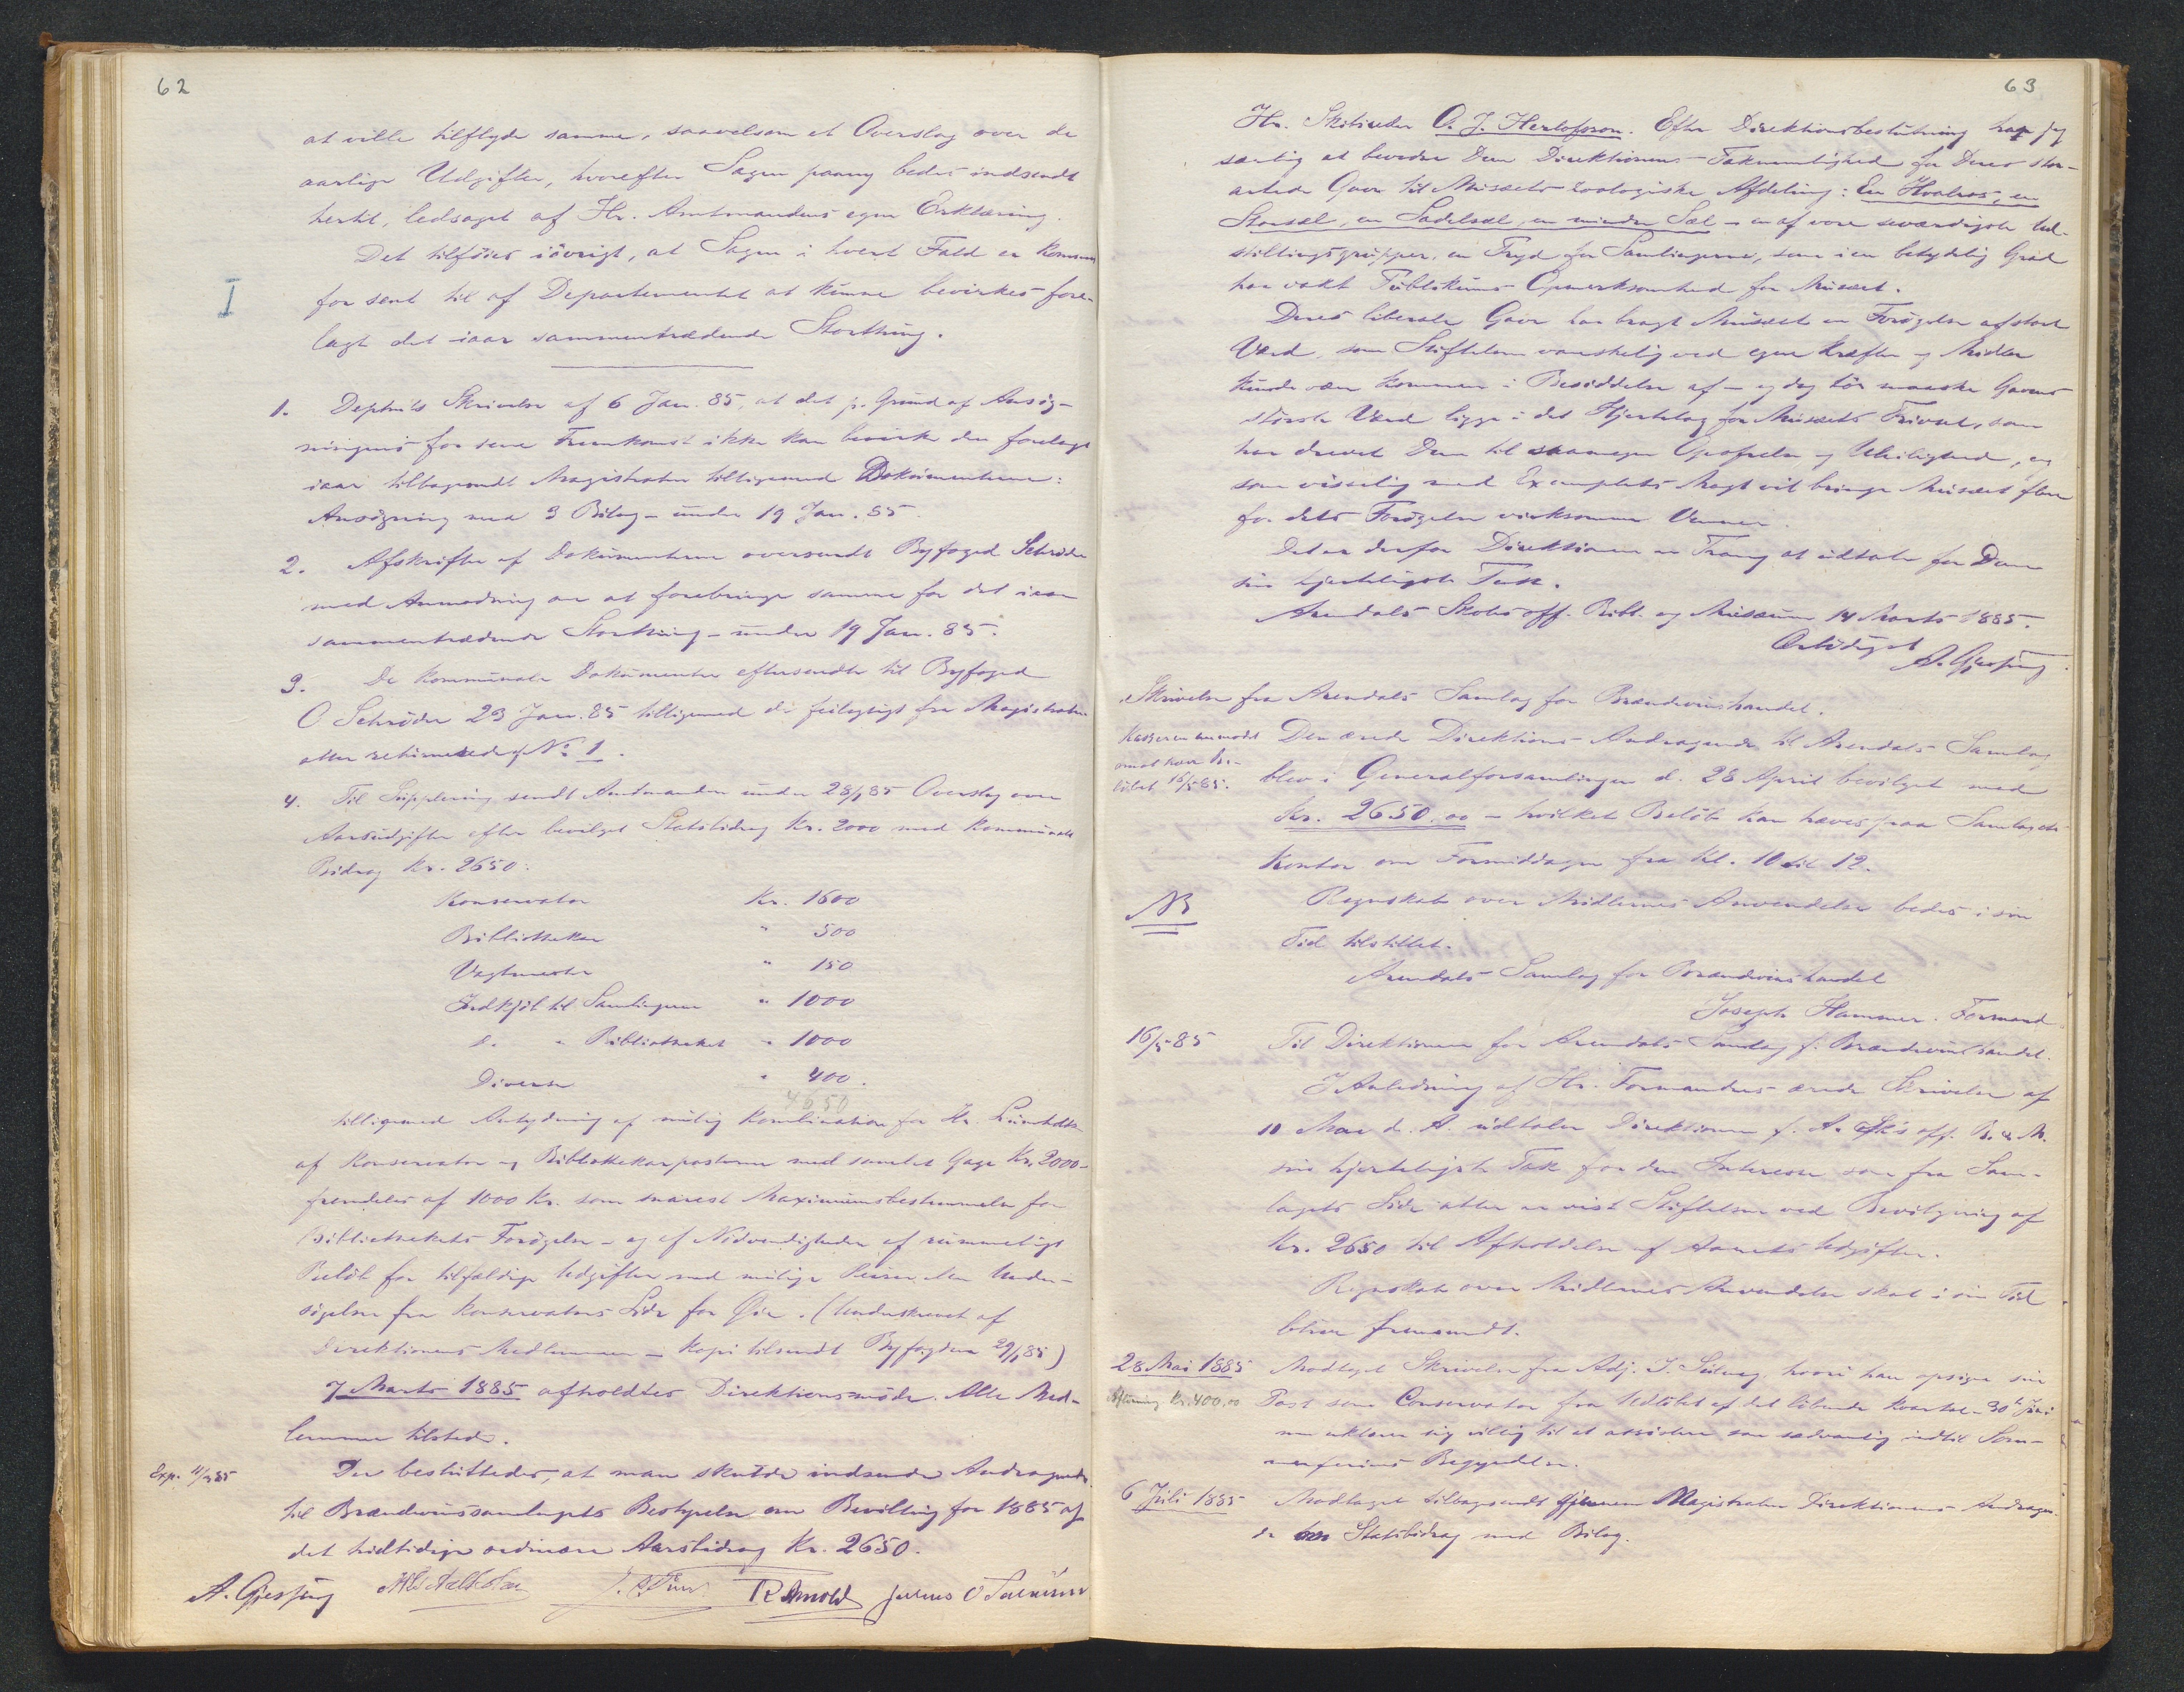 62
at ville tilflyde samme, saavelsom et Overslag over de
aarlige Udgifter, hvorefter Sagen paany bedes indsendt
hertil, ledsaget af Hr. Amtmandens egen Erklæring.
Det tilföies iövrigt, at Sagen i hvert Fald er kommen
I
for sent til af Departementet at kunne bevirkes fore-
lagt det iaar sammentrædende Storthing.
1. Deptm'ts Skrivelse af 6 Jan. 85, at det p. Grund af Ansög-
ningens for sene Fremkomst ikke kan bevirke den forelagt
iaar tilbagesendt Magistraten tilligemed Dokumenterne:
Ansögning med 3 Bilag - under 19 Jan. 85.
2. Afskrifter af Dokumenterne oversendt Byfoged Schröder
med Anmodning om at forebringe samme for det iaar
sammentrædende Storthing - under 19 Jan. 85.
3. De kommunale Dokumenter eftersendte til Byfoged
O. Schröder 23 Jan. 85 tilligemed de feilagtigt fra Magistraten
atter returnerede af No 1.
4. Til Supplering sendt Amtmanden under 28/1 85 Overslag over
Aarsudgifter efter bevilget Statsbidrag Kr. 2000 med kommunalt
Bidrag Kr. 2650:
Konservator Kr. 1600
Bibliothekar " 500
Vagtmester " 150
Indkjöb til Samlingerne " 1000
d. " Bibliotheket " 1000
Diverse " 400.
4650
tilligemed Antydning af mulig Kombination for Hr.
af Konservator og Bibliothekarposterne med samlet Gage Kr. 2000 -
fremdeles af 1000 Kr. som snarest Maximumsbestemmelse for
Bibliothekets Forögelse - og af Nödvendigheden af rummeligt
Belöb for tilfældige Udgifter med mulige Reiser eller Under-
sögelser fra Konservators Side for Öie. (Underskrevet af
Direktionens Medlemmer - Kopi tilsendt Byfogden 29/1 85)
7 Marts 1885 afholdtes Direktionsmöde. Alle Med-
lemmer tilstede.
Exp. 11/3 85
Der besluttedes, at man skulde indsende Andragende
til Brændevinssamlagets Bestyrelse om Bevilling for 1885 af
det hidtidige ordinære Aarsbidrag Kr. 2650.
A. Gjessing R Arnold Julius O
63
Hr. Skibsreder O. J. Herlofson. Efter Direktionsbeslutning har jeg
særlig at bevidne Dem Direktionens Taknemlighed for Deres stor-
artede Gave til Musæets zoologiske Afdeling: En Hvalros, en
Storsæl, en Sadelsæl, en mindre Sæl - en af vore seværdigste Ud-
stillingsgrupper, en Fryd for Samlingerne, som i en betydelig Grad
har vakt Publikums Opmerksomhed for Musæet.
Deres liberale Gave har bragt Musæet en Forögelse af stort
Værd, som Stiftelsen vanskelig ved egne Kræfter og Midler
kunde være kommen i Besiddelse af - og dog tör maaske Gavens
störste Værd ligge i det Hjertelag for Musæets Trivsel, som
har drevet Dem til saamegen Opofrelse og Uleilighed, og
som visselig med Exemplets Magt vil bringe Musæet flere
for dets Forögelse virksomme Venner.
Det er derfor Direktionen en Trang at udtale for Dem
sin hjerteligste Tak.
Arendals Skoles off. Bibl. og Musæum 14 Marts 1885.
Ærbödigst
A. Gjessing.
Skrivelse fra Arendals Samlag for Brændevinshandel.
Kassereren anmodet
om at hæve Be-
löbet 16/5 85.
Den ærede Direktions Andragende til Arendals Samlag
blev i Generalforsamlingen d. 28 April bevilget med
Kr. 2650.00 - hvilket Belöb kan hæves paa Samlagets
Kontor om Formiddagen fra Kl. 10 til 12.
NB
Regnskab over Midlernes Anvendelse bedes i sin
Tid tilstillet.
Arendals Samlag for Brændevinshandel
Joseph Hammer. Formand
16/5 85
Til Direktionen for Arendals Samlag f. Brændevinshandel.
I Anledning af Hr. Formandens ærede Skrivelse af
10 Mai d. A. udtaler Direktionen f. A. Sk's off. B. & M.
sin hjerteligste Tak for den Interesse som fra Sam-
lagets Side atter er vist Stiftelsen ved Bevilgning af
Kr. 2650 til Afholdelse af Aarets Udgifter.
Regnskab over Midlernes Anvendelse skal i sin Tid
blive fremsendt.
28 Mai 1885
Kr. 400.00
Modtaget Skrivelse fra Adj. hvori han opsiger sin
Post som Conservator fra Udlöbet af det löbende Kvartal - 30te Juni
men erklærer sig villig til at assistere som sædvanlig indtil Som-
merferiens Begyndelse.
6 Juli 1885
Modtaget tilbagesendt gjennem Magistraten Direktionens Andragen-
de om Statsbidrag med Bilag.